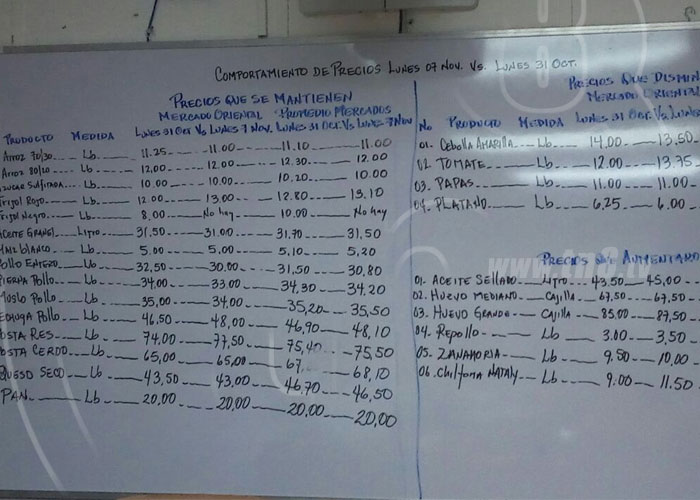 COMPORTAMIENTO DE PRECIOS LUNES 07 NOV. VS. LUNES 31 OCT.
PRECIOS QUE SE MANTIENEN
MERCADO ORIENTAL PROMEDIO MERCADOS
PRODUCTO MEDIDA LUNES 31 OCT VS LUNES 7 NOV. LUNES 31 OCT. VS LUNES 7 NOV
ARROZ 70/30 Lb 11.25 11.00 11.10 11.00
ARROZ 80/20 Lb 12,00 12.00 12.30 12.00
AZUCAR SULFITADA Lb 10.00 10.00 10.20 10.00
FRIJOL ROJO Lb 12.00 13.00 12.80 13.10
FRIJOL NEGRO Lb 8.00 No hay 10.00 No hay
ACEITE GRANEL LITRO 31,50 31.00 31.70 31,50
MAIZ BLANCO Lb 5.00 5.00 5,10 5,20
POLLO ENTERO Lb 32,50 30.00 31,50 30.80
PIERNA POLLO Lb 34,00 33.00 34,30 34,20
MUSLO POLLO Lb 35,00 34,00 35,20 35,50
PECHUGA POLLO Lb 46,50 48,00 46,90 48,10
POSTA RES Lb 74,00 77,50 75,40 75,50
POSTA CERDO Lb 65,00 65,00 67, 68,10
QUESO SECO Lb 43,50 43,00 46,70 46,50
PAN Lb 20,00 20,00 20,00 20,00
PRECIOS QUE DISMIN
MERCADO ORIENTAL
No PRODUCTO MEDIDA LUNES 31 OCT. VS LUNES
01. Cebolla AMARILLA Lb 14.00 13,50
02. TOMATE Lb 12.00 13.75
03. PAPAS Lb 11.00 11.00
04. PLATANO Lb 6,25 6.00
PRECIOS QUE AUMENTARO
www.tn8.tv
01. ACEITE SELLADO LITRO 43,50 45,00
02. HUEVO MEDIANO CAJILLA 67,50 67,50
03. HUEVO GRANDE CAJILLA 85.00 87,50
04. Repollo Lb 3.00 3,50
05. ZANAHORIA Lb 9,50 10.00
06. Chiltoma NATALY Lb 9.00 11.50